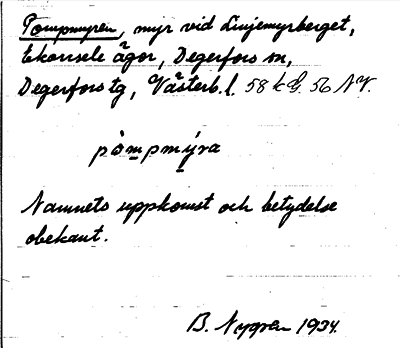 Pompmyren, myr vid Linjemyrberget,
Ekorrsele ägor, Degerfors sn,
Degerfors tg, Västerb. l. 58 k d. 56 NV.
pòmpmýra
Namnets uppkomst och betydelse
obekant.
B. Nygren 1934.